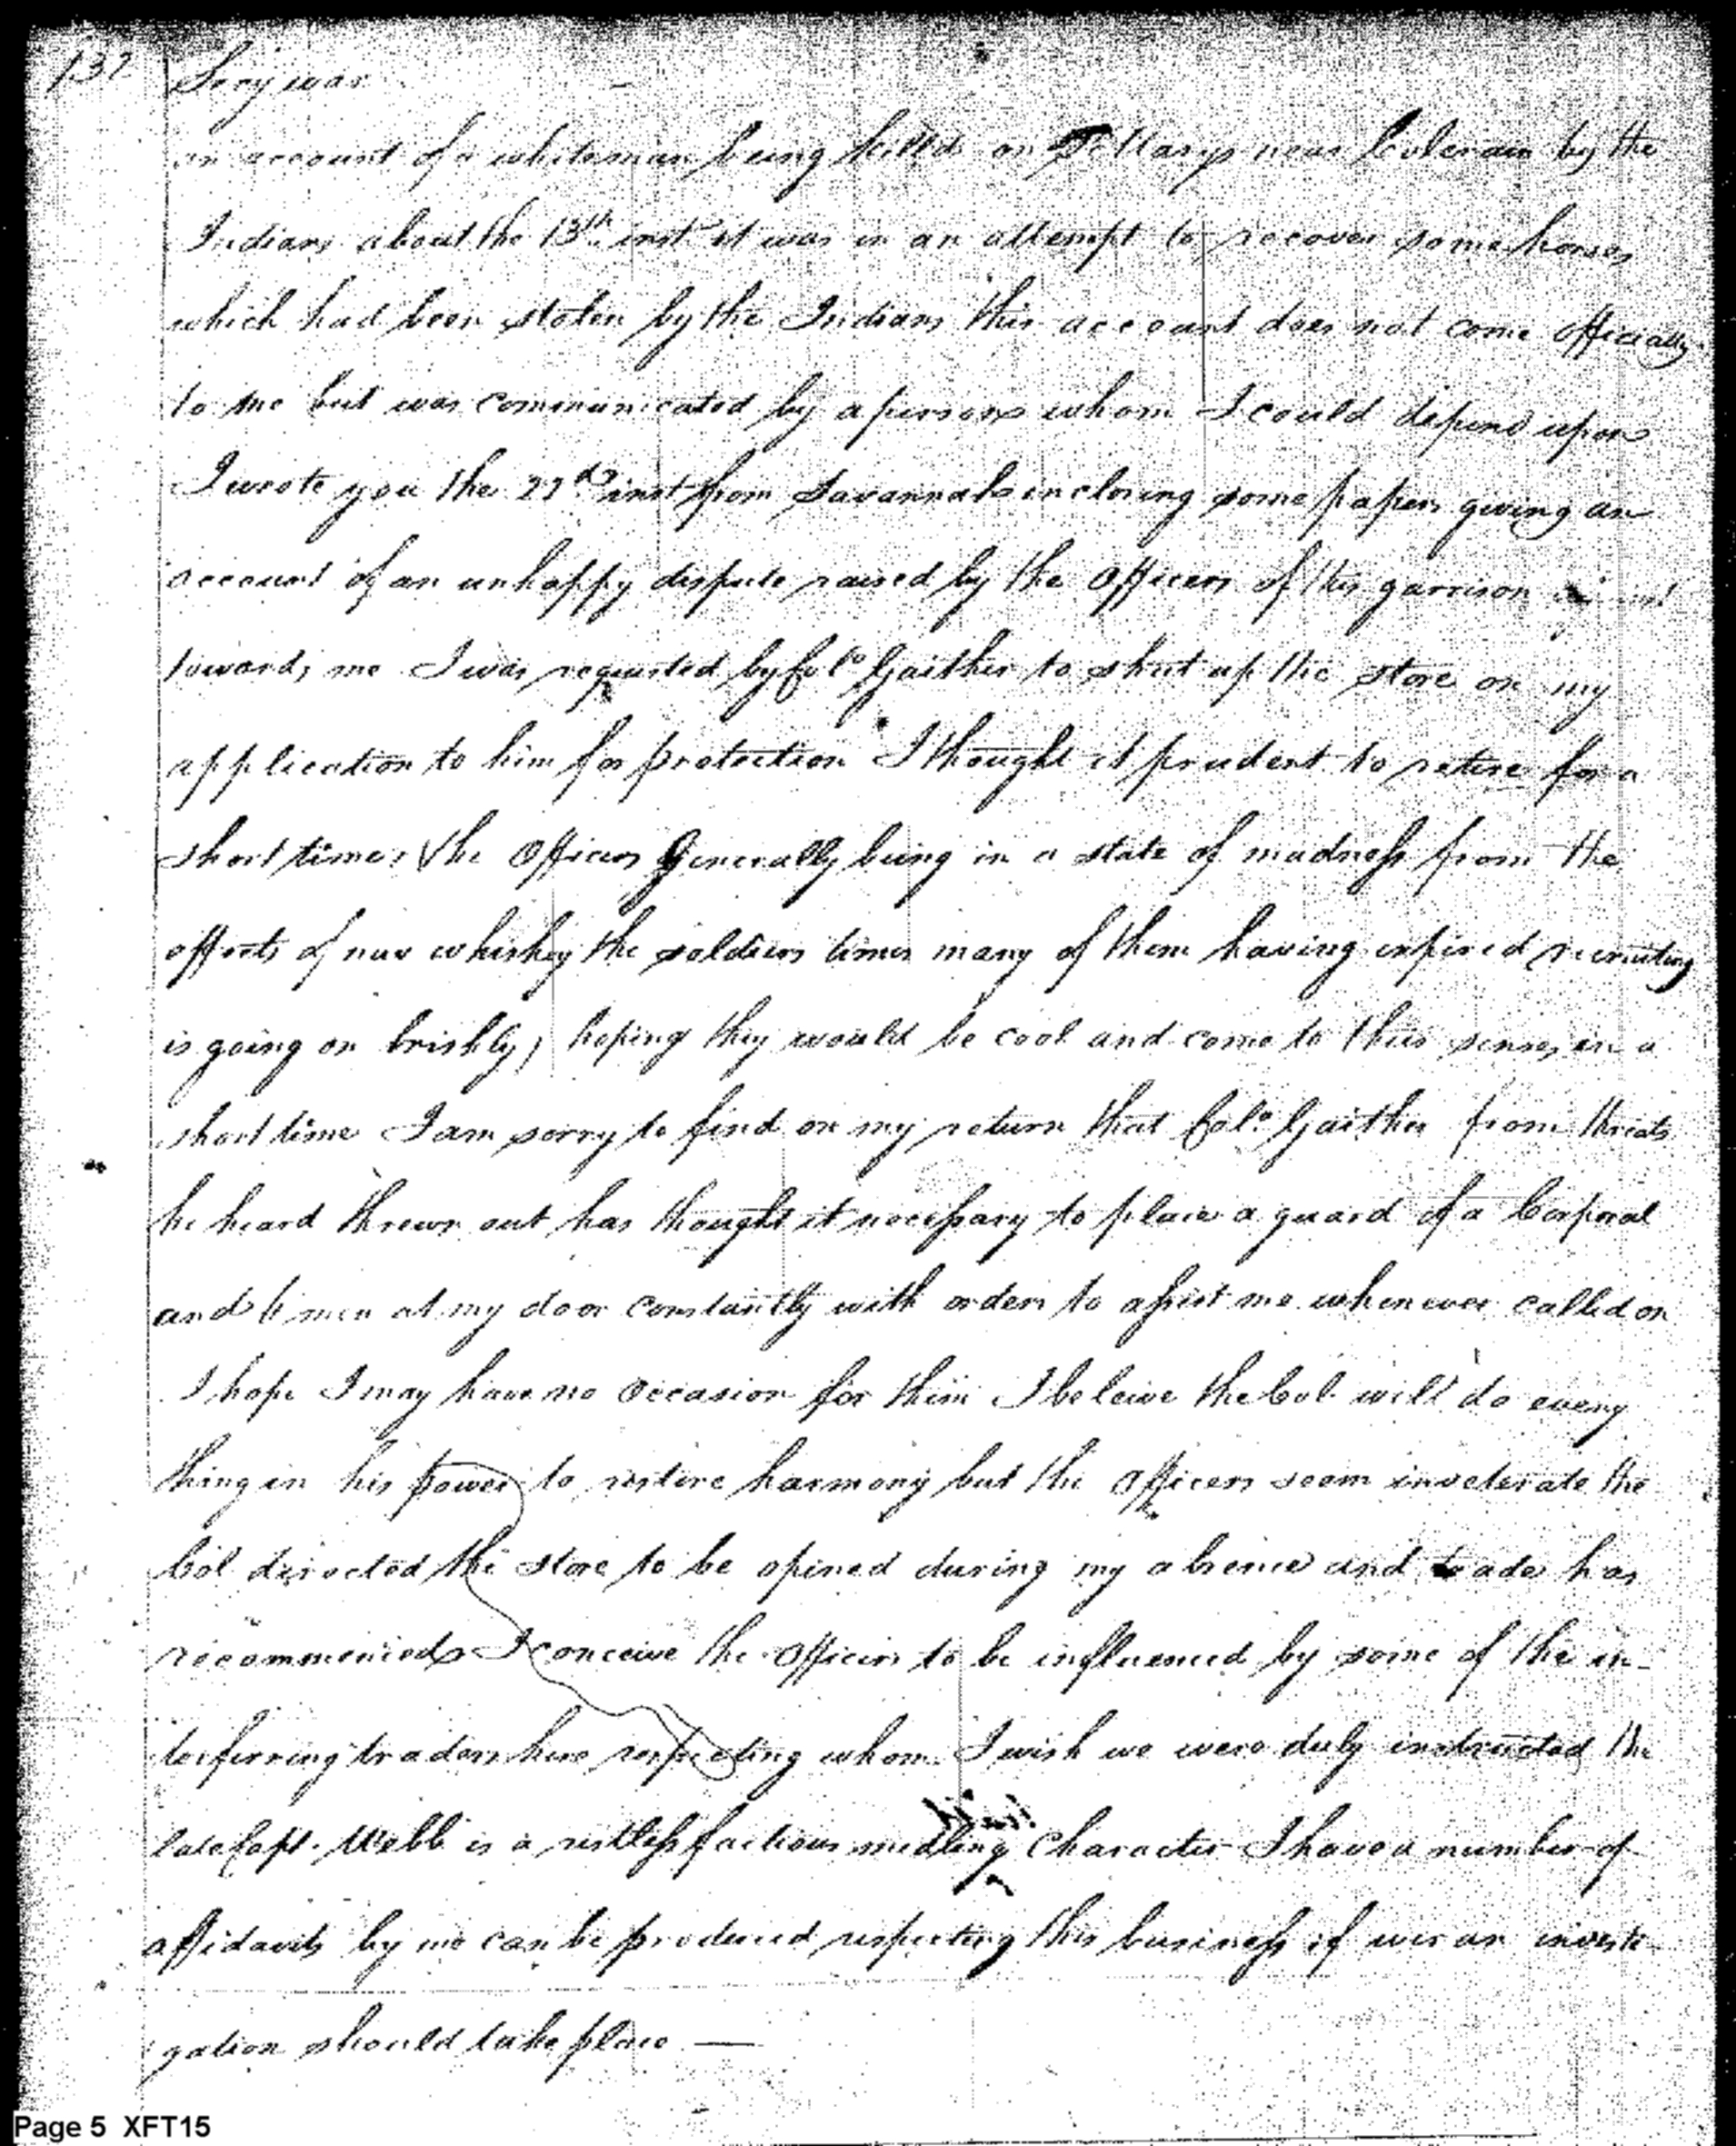 132
Secy war
an account of a whiteman being killed on St Marys near Colerain by the
Indians about the 13th inst it was in an attempt to recover some horses
which had been stolen by the Indians this account does not come officially
to me but was communicated by a person whom I could depend upon
I wrote you the 22d inst from Savannah inclosing some papers giving an
account of an unhappy dispute raised by the Officers of this garrison
towards me I was requested by Colo Gaither to shut up the store on my
application to him for protection I thought it prudent to retire for a
short time, (the Officers Generally being in a state of madness from the
effects of new whiskey the soldiers times many of them having expired recruiting
is going on briskly) hoping they would be cool and come to their senses in a
short time I am sorry to find on my return that Colo. Gaither from threats
he heard thrown out has thought it necessary to place a guard of a Corporal
and 6 men at my door constantly with orders to assist me whenever called on
I hope I may have no occasion for them I beleive the Col will do every
thing in his power to restore harmony but the Officers seem inveterate the
Col directed the store to be opened during my absence and trade has
recommenced I conceive the Officers to be influenced by some of the in-
terferring traders here respecting whom I wish we were duly instructed the
late Capt. Webb is a restless factious medling Character I have a number of
affidavits by me can be produced respecting this business if ever an investi-
gation should take place —
Page 5 XFT15